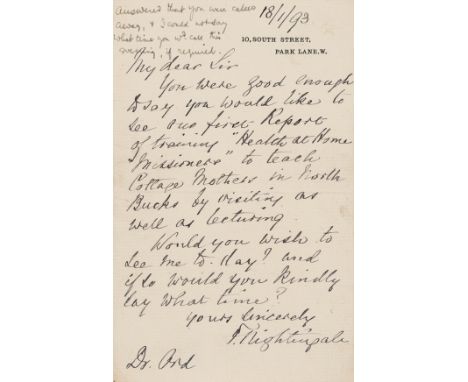 Answered that you were called
away, & I could not say
what time you wd call this
evening, if required.
18/1/93
10, SOUTH STREET,
PARK LANE, W.
My dear Sir
You were good enough
to say you would like to
see our first Report
of training "Health at Home
Missioners" to teach
Cottage Mothers in North
Bucks by visiting as
well as lecturing.
Would you wish to
see me to-day? and
if so would you kindly
say what time?
Yours sincerely
F. Nightingale
Dr. Ord